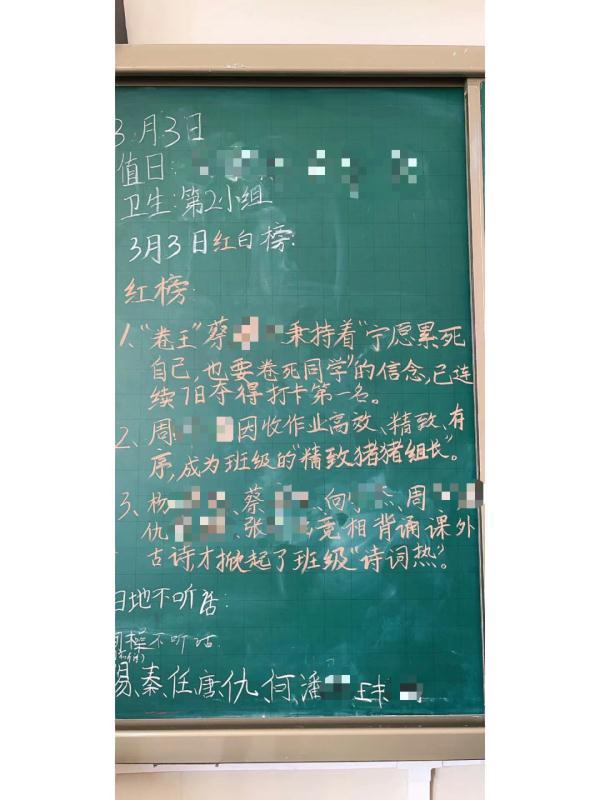 3月3日
值日:
卫生:第2小组
3月3日红白榜:
红榜:
1、"卷王"蔡 秉持着"宁愿累死
自己,也要卷死同学"的信念,已连
续7日夺得打卡第一名。
2、周 因收作业高效、精致、有
序,成为班级的"精致猪猪组长"。
3、杨 、蔡 、向 、周
仇 、张 竞相背诵课外
古诗才掀起了班级"诗词热"。
扫地不听话:
操不听话
易秦任唐仇何潘